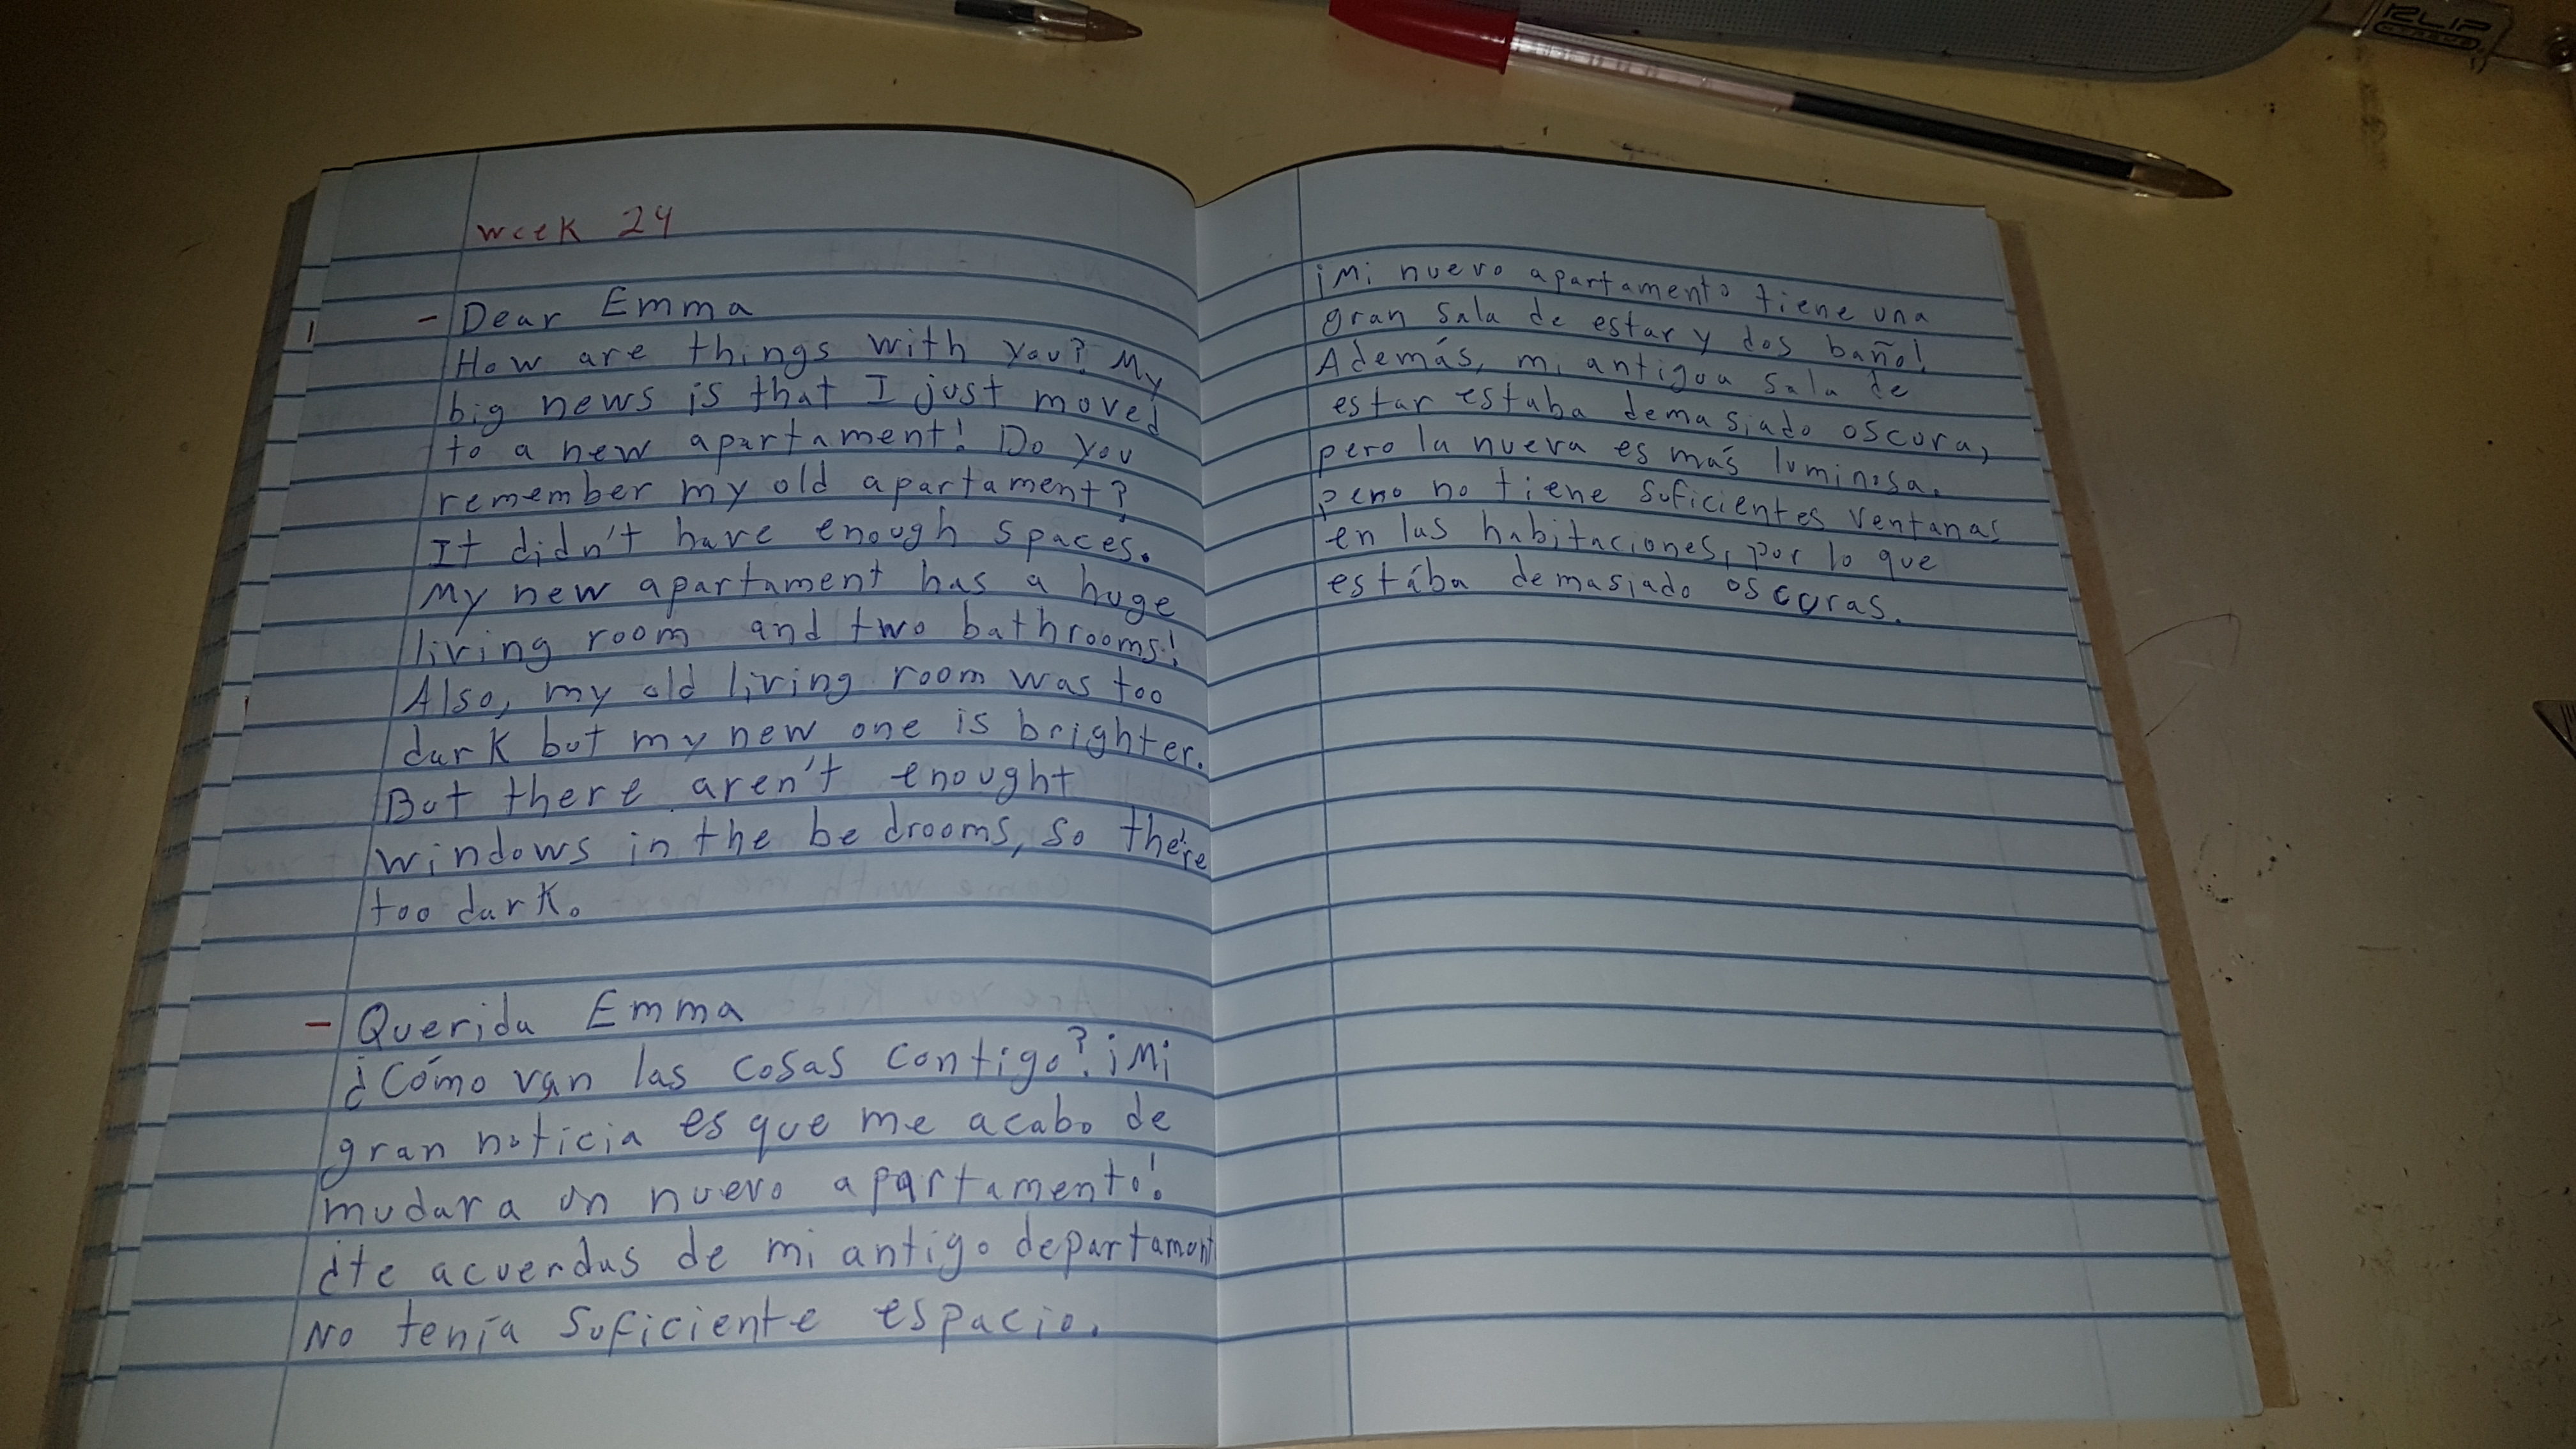 week 24
- Dear Emma
How are things with you? My
big news is that I just moved
to a new apartament! Do you
remember my old apartament?
It didn't have enough spaces.
My new apartament has a huge
living room and two bathrooms!
Also, my old living room was too
dark but my new one is brighter.
But there aren't enought
windows in the bedrooms, so the're
too dark.
- Querida Emma
¿Cómo van las cosas contigo? ¡Mi
gran noticia es que me acabo de
mudar a un nuevo apartamento!
¿te acuerdas de mi antigo departament
No tenía suficiente espacio.
¡Mi nuevo apartamento tiene una
gran sala de estar y dos baño!
Además, mi antigua sala de
estar estaba demasiado oscura,
pero la nueva es más luminosa.
pero no tiene suficientes ventanas
en las habitaciones, por lo que
estába demasiado oscuras.
KLIP